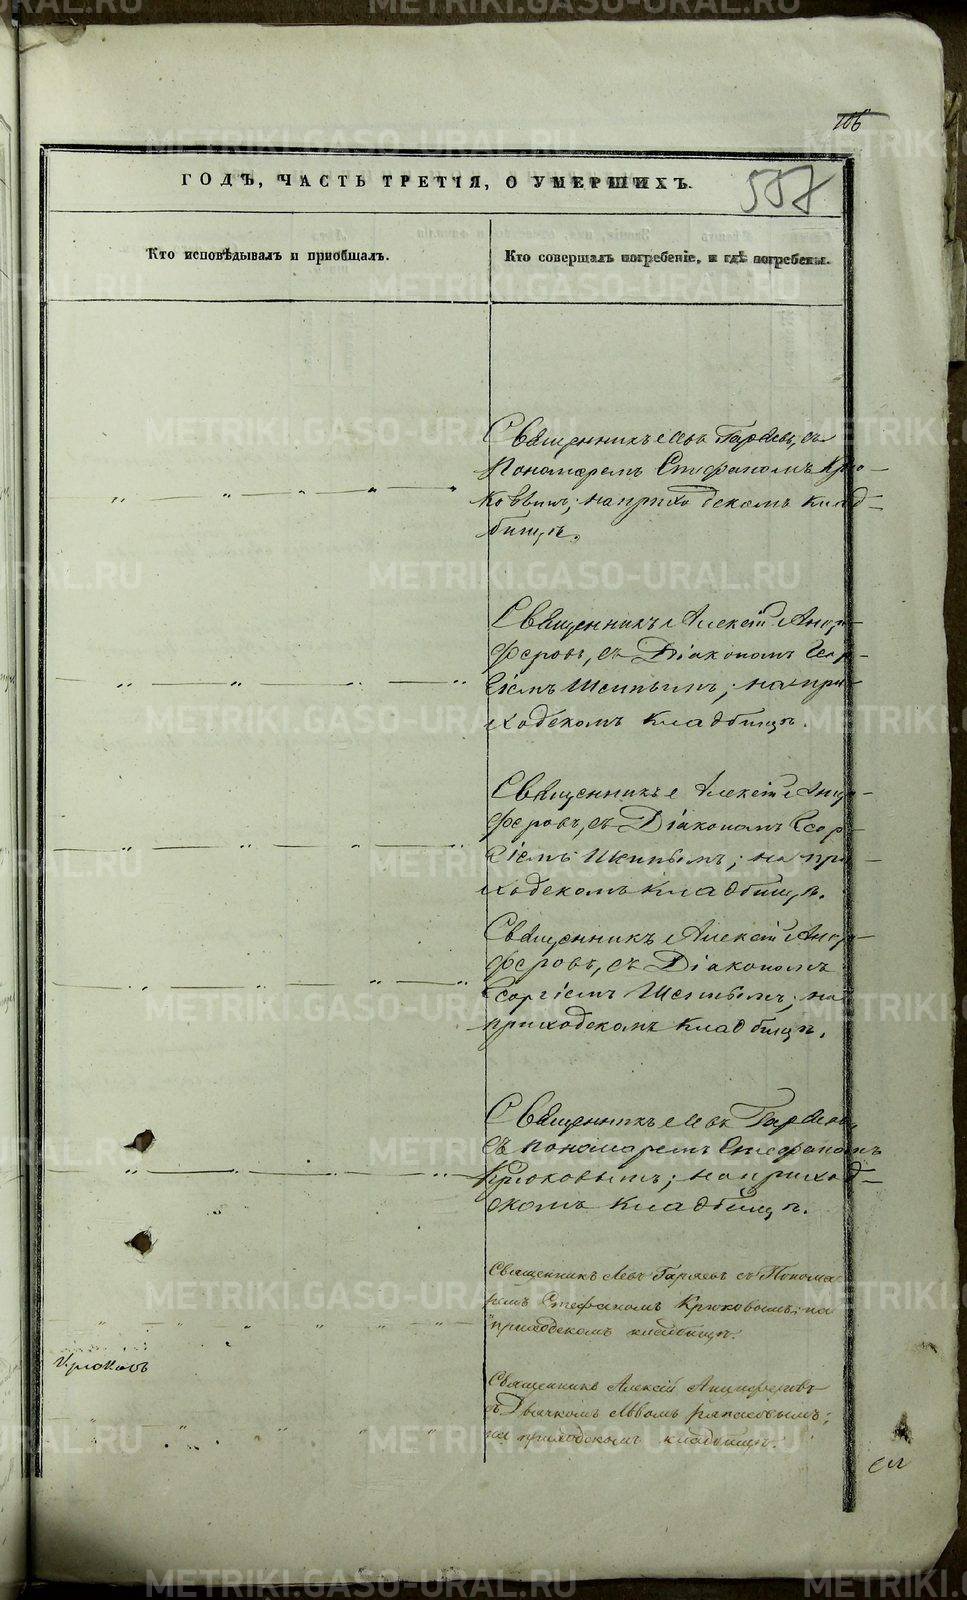 106
ГОДЪ, ЧАСТЬ ТРЕТІЯ, О УМЕРШИХЪ.
557
Кто исповѣдывалъ и пріобщалъ.
Кто совершалъ погребеніе, и гдѣ погребены.
Священникъ Левъ Гаряевъ, съ
Пономаремъ Стефаномъ Крю-
ковымъ; на приходскомъ клад-
бищѣ.
Священникъ Алексій Анци-
феровъ, съ Діакономъ Геор-
гіемъ; на при-
ходскомъ кладбищѣ.
Священникъ Алексій Анци-
феровъ, съ Діакономъ Геор-
гіемъ; на при-
ходскомъ кладбищѣ.
Священникъ Алексій Анци-
феровъ, съ Діакономъ
Георгіемъ; на
приходскомъ кладбищѣ.
Священникъ Левъ Гаряевъ,
съ пономаремъ Стефаномъ
Крюковымъ; на приход-
скомъ кладбищѣ.
Священникъ Левъ Гаряевъ съ Понома-
ремъ Стефаномъ Крюковымъ; на
приходскомъ кладбищѣ.
Крюковъ
Священникъ Алексій Анциферовъ
съ Дьячкомъ Львомъ
на приходскомъ кладбищѣ.
METRIKI.GASO-URAL.RU